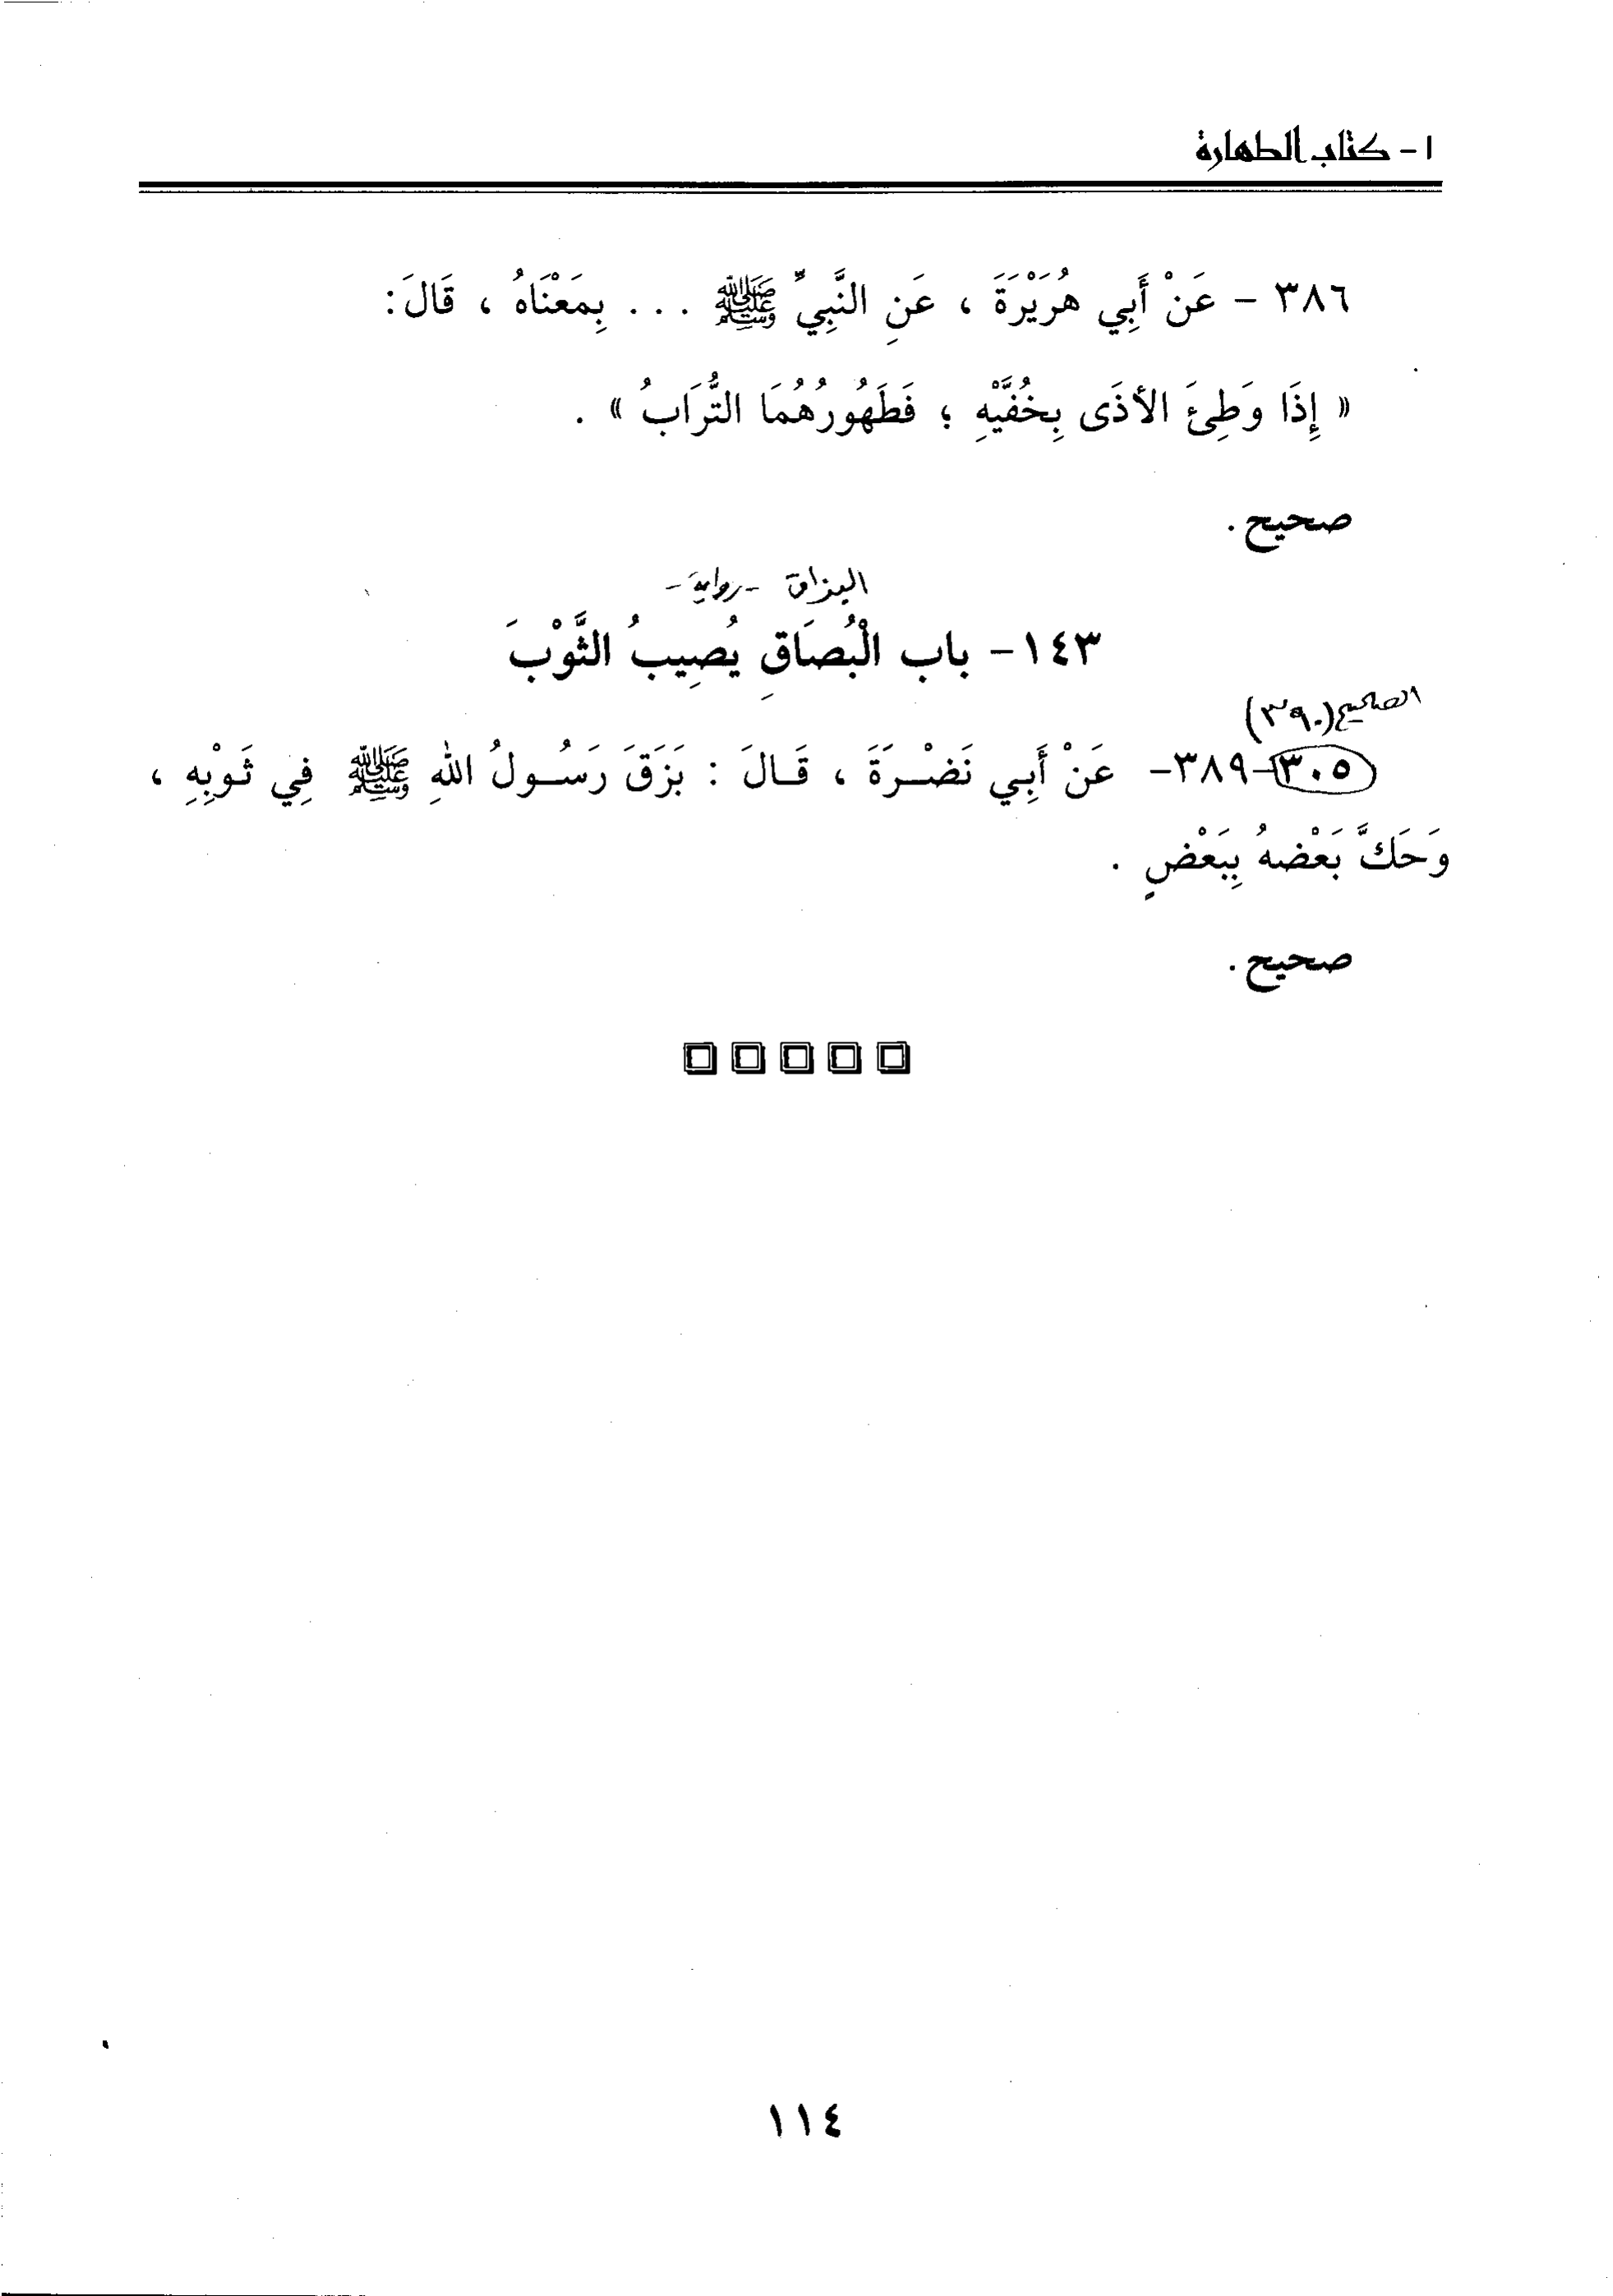 ١- كتاب الطهارة
٣٨٦ - عَنْ أَبِي هُرَيْرَةَ ، عَنِ النَّبِيِّ ﷺ . . . بِمَعْنَاهُ ، قَالَ:
« إِذَا وَطِئَ الأَذَى بِخُفَّيْهِ ؛ فَطَهُورُهُمَا التُّرَابُ » .
صحيح.
البزاق - رواية -
١٤٣- باب الْبُصَاقِ يُصِيبُ الثَّوْبَ
الصحيح (٣٩٠)
٣٠٥-٣٨٩- عَنْ أَبِي نَضْرَةَ ، قَالَ : بَزَقَ رَسُولُ اللهِ ﷺ فِي ثَوْبِهِ ،
وَحَكَّ بَعْضَهُ بِبَعْضٍ .
صحيح.
١١٤